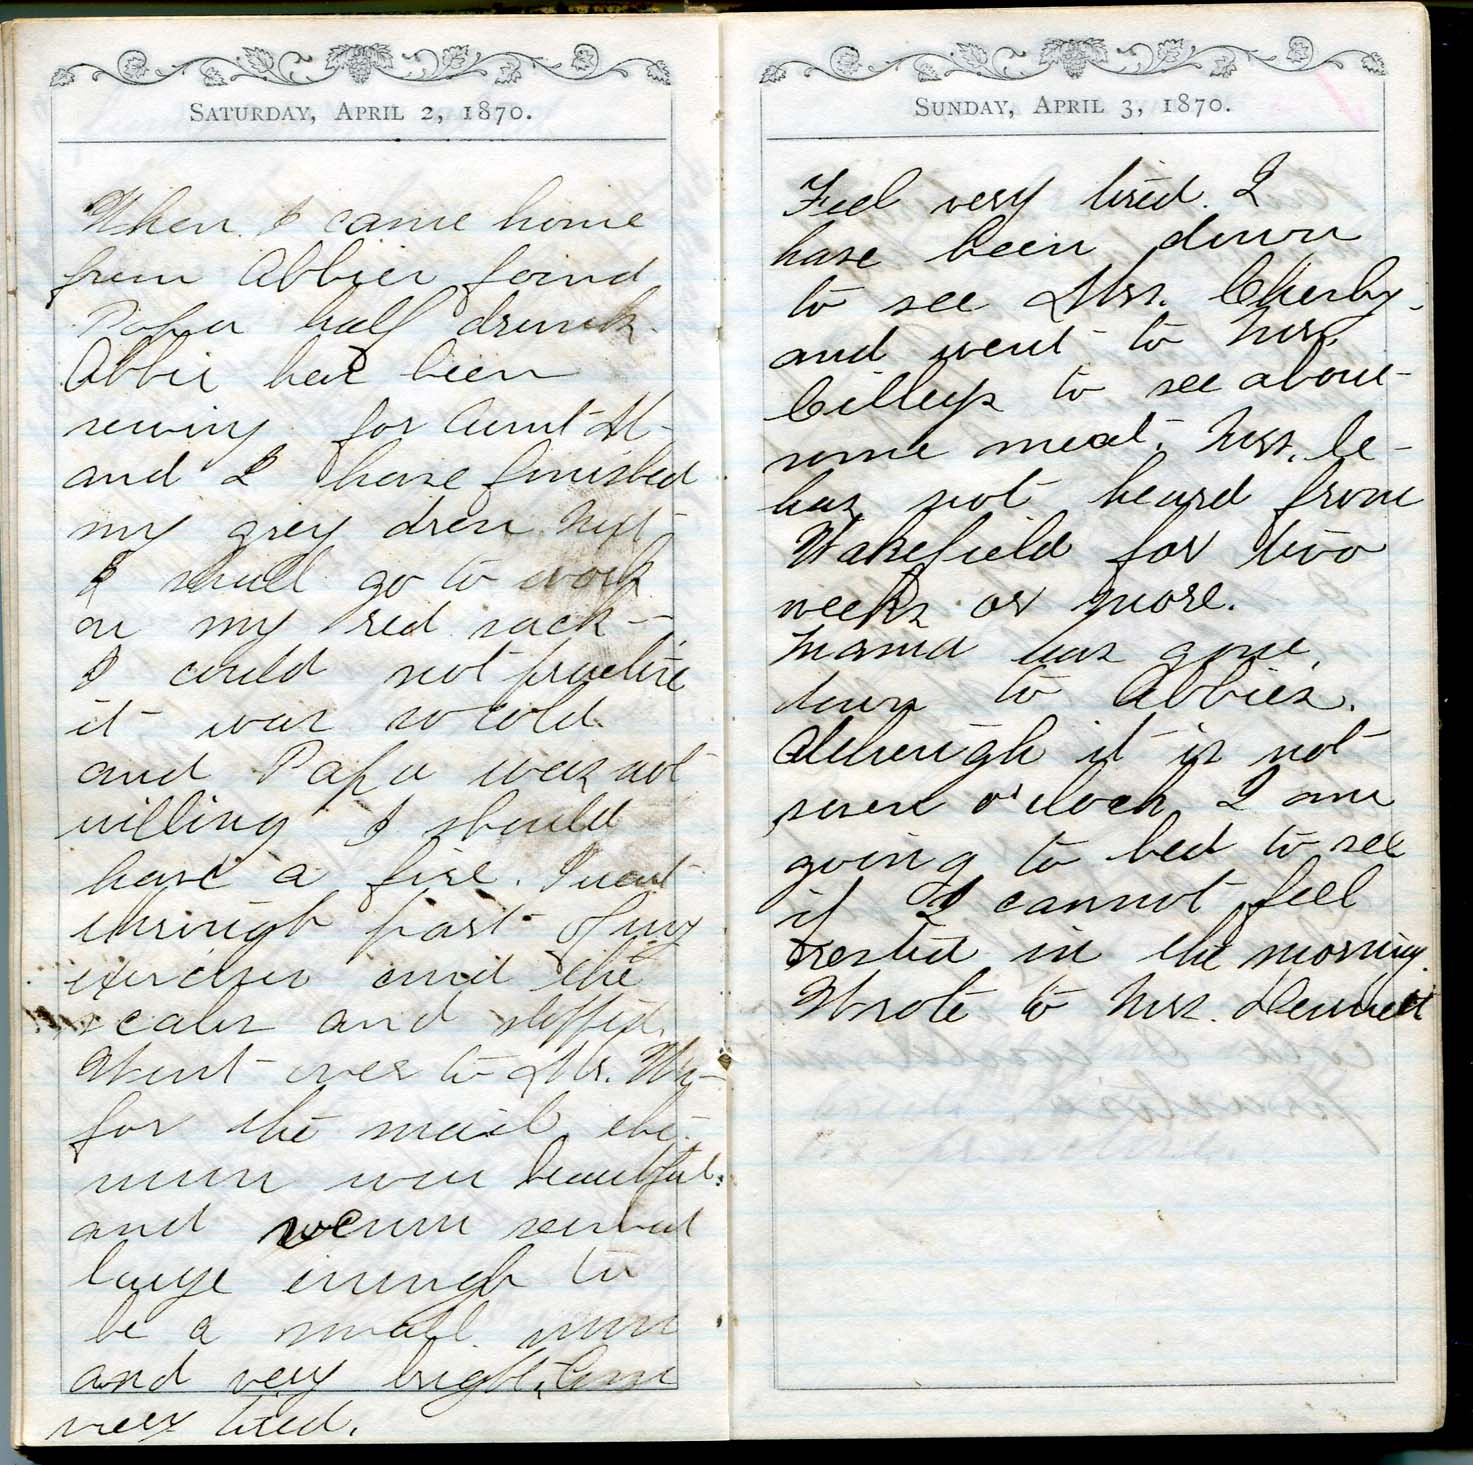 Saturday, April 2, 1870.
When I came home
from Abbies found
Papa half drunk.
Abbie has been
sewing for Aunt M-
and I have finished
my grey dress. Next
I shall go to work
on my red sack-
I could not practise
it was so cold
and Papa was not
willing I should
have a fire. I went
through part of my
exercises and the
scales and stopped.
Went over to Mr.
for the mail, the
moon was beautiful.
and seemed
large enough to
be a small moon
and very bright. Am
very tired.
Sunday, April 3, 1870.
Feel very tired. I
have been down
to see Mrs.
and went to Mrs.
Cilleys to see about
some meat. Mrs. C-
has not heard from
Wakefield for two
weeks or more.
Mama has gone
down to Abbies.
Although it is not
seven o'clock, I am
going to bed to see
if I cannot feel
rested in the morning.
Wrote to Mrs. Dennett